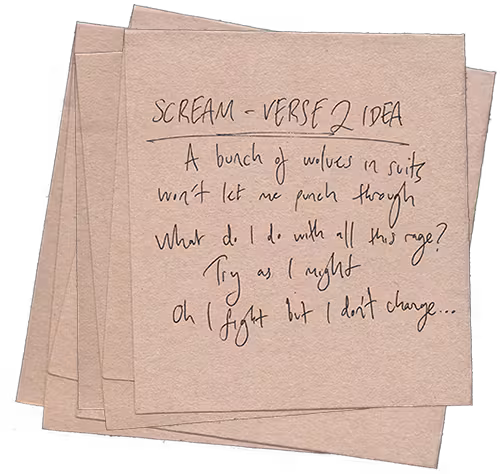 SCREAM - VERSE 2 IDEA
A bunch of wolves in suits
won't let me punch through
What do I do with all this rage?
Try as I might
Oh I fight but I don't change...